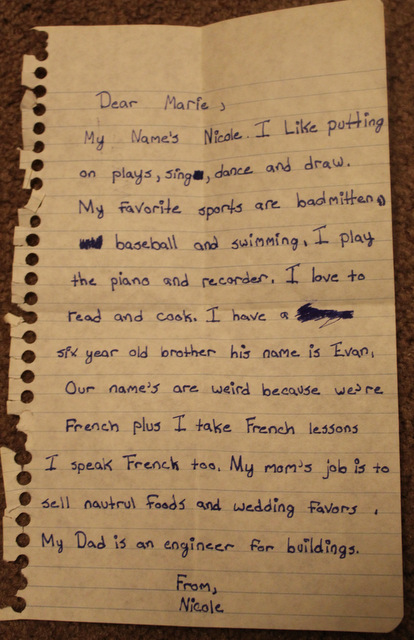 Dear Marie,
My Name's Nicole. I Like putting
on plays, sing, dance and draw.
My favorite sports are badmitten,
baseball and swimming. I play
the piano and recorder. I love to
read and cook. I have a
six year old brother his name is Evan.
Our name's are weird because we're
French plus I take French lessons
I speak French too. My mom's job is to
sell nautrul foods and wedding favors.
My Dad is an engineer for buildings.
From,
Nicole